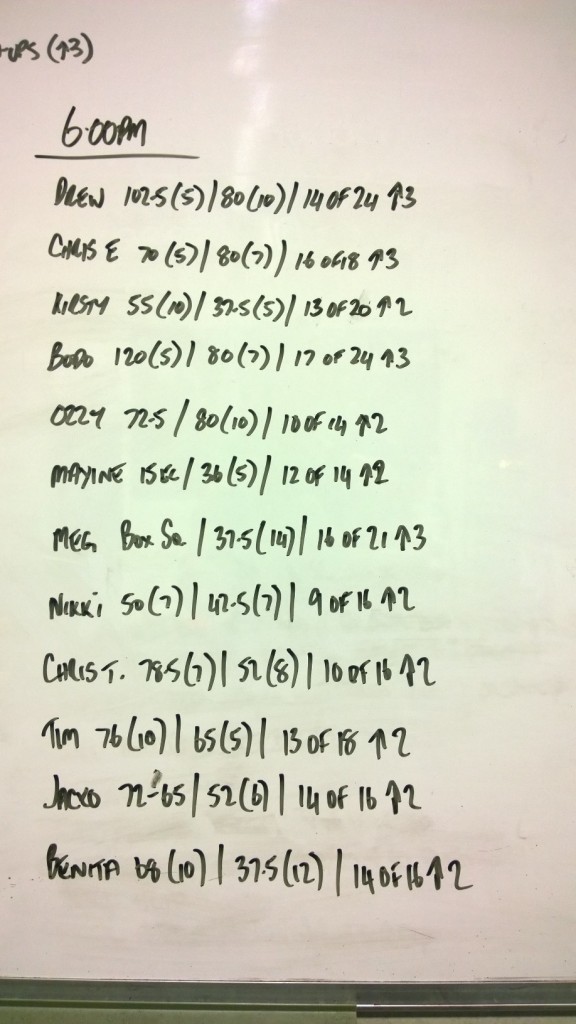 -UPS (↑3)
6:00PM
DREW 102.5(5)/80(10)/14 OF 24 ↑3
CHRIS E 70(5)/80(7)/16 OF 18 ↑3
KIRSTY 55(10)/37.5(5)/13 OF 20 ↑2
BODO 120(5)/80(7)/17 OF 24 ↑3
OZZY 72.5/80(10)/10 OF 14 ↑2
MAYINE ISEC/36(5)/12 OF 14 ↑2
MEG Box SQ/37.5(14)/16 OF 21 ↑3
NIKKI 50(7)/42.5(7)/9 OF 16 ↑2
CHRIS T. 78.5(7)/52(8)/10 OF 16 ↑2
TIM 76(10)/65(5)/13 OF 18 ↑2
JACKO 72-65/52(6)/14 OF 16 ↑2
BENITA 68(10)/37.5(12)/14 OF 16 ↑2